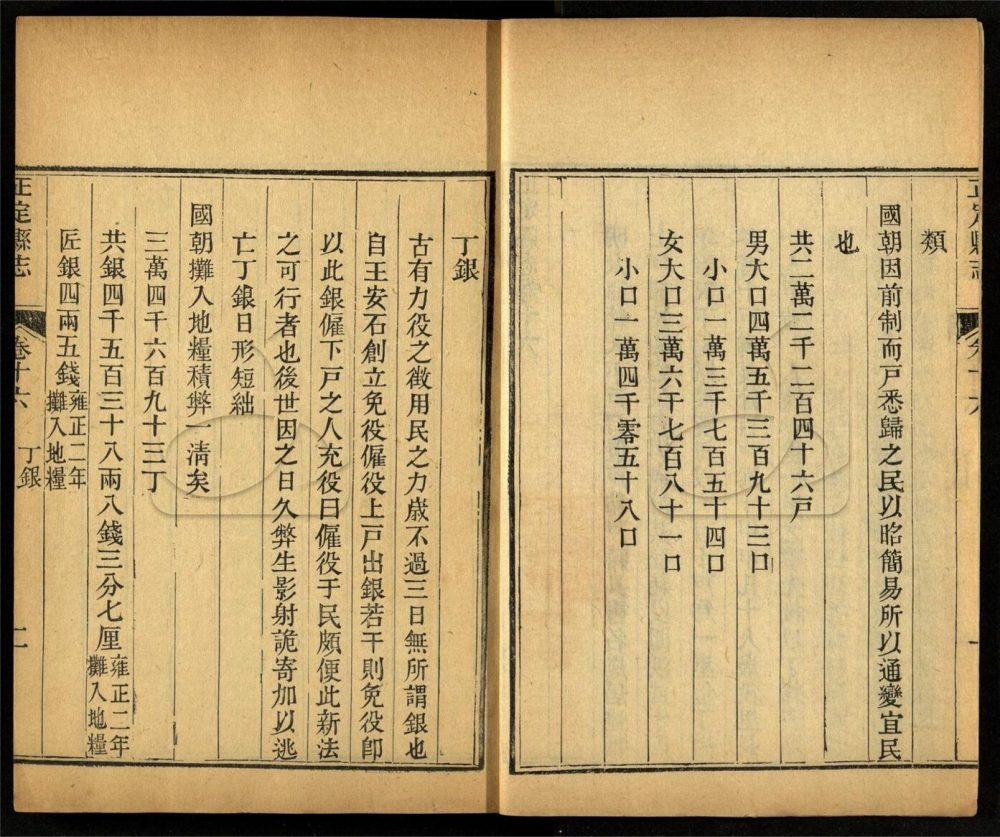 正定縣志
類
國朝因前制而戸悉歸之民以昭簡易所以通變宜民
也
共二萬二千二百四十六戸
男大口四萬五千三百九十三口
小口一萬三千七百五十四口
女大口三萬六千七百八十一口
小口一萬四千零五十八口
丁銀
古有力役之徵用民之力歲不過三日無所謂銀也
自王安石創立免役僱役上戸出銀若干則免役卽
以此銀僱下戸之人充役曰僱役于民頗便此新法
之可行者也後世因之日久弊生影射詭寄加以逃
亡丁銀日形短絀
國朝攤入地糧積弊一清矣
三萬四千六百九十三丁
共銀四千五百三十八兩八錢三分七厘雍正二年攤入地糧
匠銀四兩五錢雍正二年攤入地糧
正定縣志 卷十六 丁銀